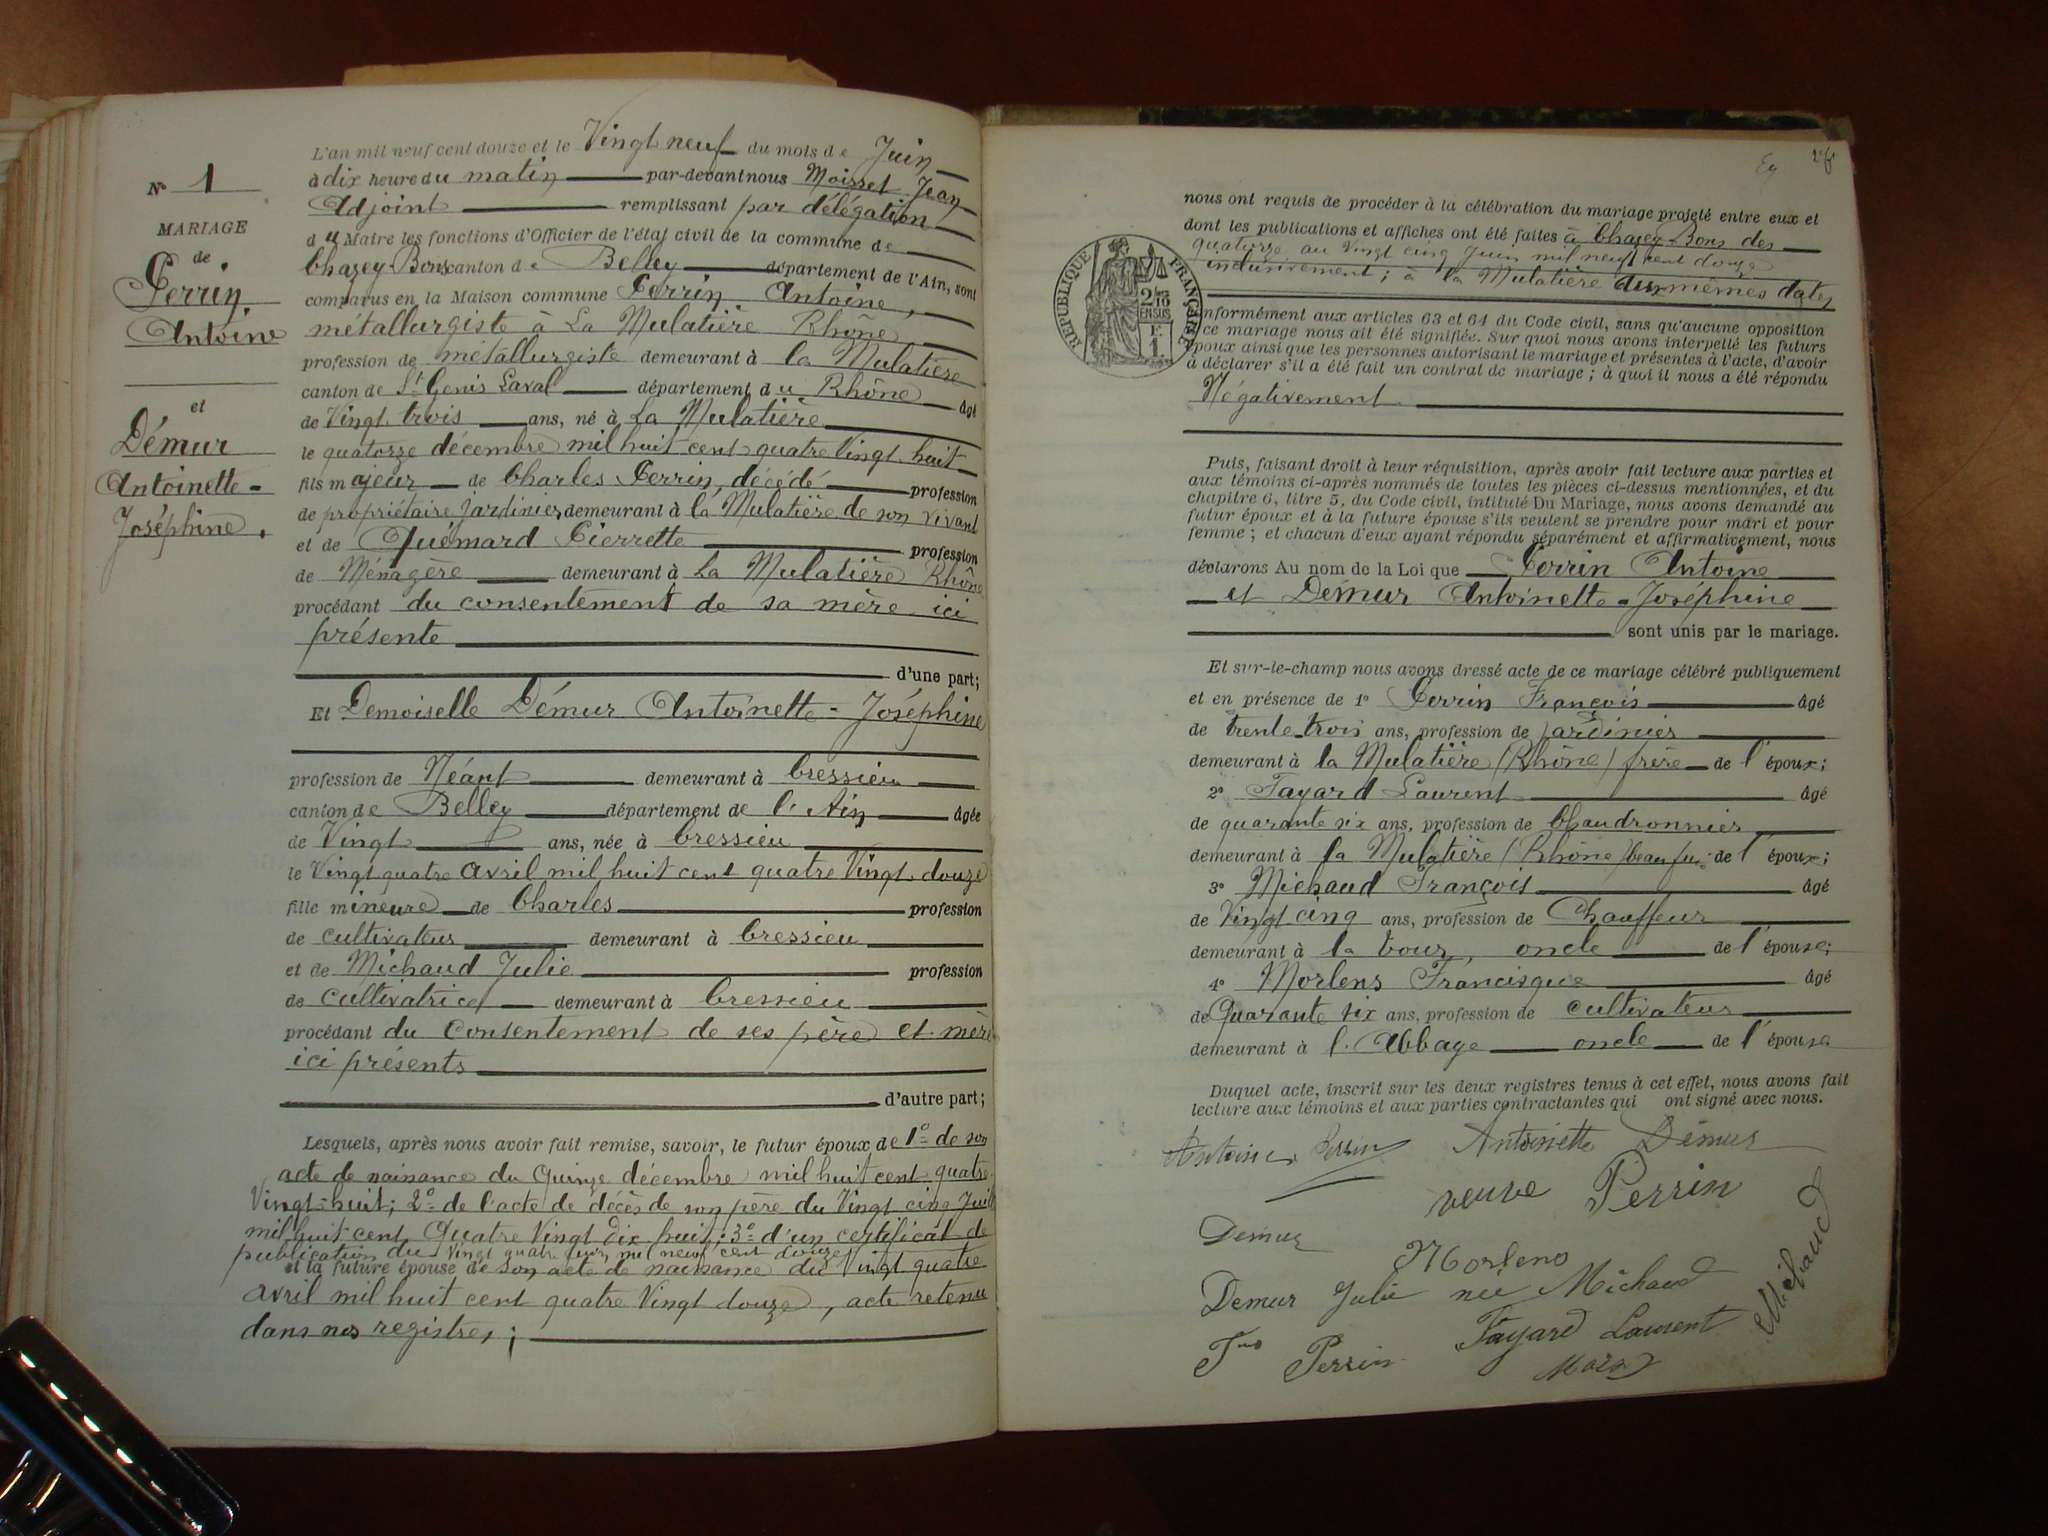 N° 1
MARIAGE
de
Perrin
Antoine
et
Démur
Antoinette-
Joséphine.
L'an mil neuf cent douze et le Vingt neuf du mois de Juin
à dix heure du matin par-devant nous Moisset Jean
Adjoint remplissant par délégation
du Maire les fonctions d'Officier de l'état civil de la commune de
Chazey-Bons canton de Belley département de l'Ain, sont
comparus en la Maison commune Perrin Antoine,
métallurgiste à La Mulatière Rhône
profession de métallurgiste demeurant à la Mulatière
canton de St Genis Laval département du Rhône âgé
de Vingt trois ans, né à La Mulatière
le quatorze décembre mil huit cent quatre Vingt huit
fils majeur de Charles Perrin, décédé profession
de propriétaire jardinier demeurant à la Mulatière de son vivant
et de Quémard Pierrette profession
de Ménagère demeurant à La Mulatière Rhône
procédant du consentement de sa mère ici
présente
d'une part;
Et Demoiselle Démur Antoinette-Joséphine
profession de Néant demeurant à Cressieu
canton de Belley département de l'Ain âgée
de Vingt ans, née à Cressieu
le Vingt quatre avril mil huit cent quatre Vingt douze
fille mineure de Charles profession
de cultivateur demeurant à Cressieu
et de Michaud Julie profession
de cultivatrice demeurant à Cressieu
procédant du Consentement de ses père et mère
ici présents
d'autre part;
Lesquels, après nous avoir fait remise, savoir, le futur époux de 1° de son
acte de naissance du Quinze décembre mil huit cent quatre
Vingt-huit; 2° de l'acte de décès de son père du Vingt cinq
mil huit cent Quatre Vingt Dix huit; 3° d'un certificat de
publication du Vingt quatre juin mil neuf cent douze
et la future épouse de son acte de naissance du Vingt quatre
avril mil huit cent quatre Vingt douze, acte retenu
dans nos registres;
26
RÉPUBLIQUE FRANÇAISE
nous ont requis de procéder à la célébration du mariage projeté entre eux et
dont les publications et affiches ont été faites à Chazey-Bons des
quatorze au Vingt cinq Juin mil neuf cent douze
inclusivement; à la Mulatière aux mêmes dates
onformément aux articles 63 et 64 du Code civil, sans qu'aucune opposition
ce mariage nous ait été signifiée. Sur quoi nous avons interpellé les futurs
époux ainsi que les personnes autorisant le mariage et présentes à l'acte, d'avoir
à déclarer s'il a été fait un contrat de mariage; à quoi il nous a été répondu
Négativement
Puis, faisant droit à leur réquisition, après avoir fait lecture aux parties et
aux témoins ci-après nommés de toutes les pièces ci-dessus mentionnées, et du
chapitre 6, titre 5, du Code civil, intitulé Du Mariage, nous avons demandé au
futur époux et à la future épouse s'ils veulent se prendre pour mari et pour
femme; et chacun d'eux ayant répondu séparément et affirmativement, nous
déclarons Au nom de la Loi que Perrin Antoine
et Démur Antoinette-Joséphine
sont unis par le mariage.
Et sur-le-champ nous avons dressé acte de ce mariage célébré publiquement
et en présence de 1° Perrin François âgé
de trente trois ans, profession de jardinier
demeurant à la Mulatière (Rhône) frère de l'époux;
2° Fayard Laurent âgé
de quarante six ans, profession de Chaudronnier
demeurant à la Mulatière (Rhône) beau fre de l'époux;
3° Michaud François âgé
de Vingt cinq ans, profession de Chauffeur
demeurant à la Cour, oncle de l'épouse;
4° Morlens Francisque âgé
de Quarante six ans, profession de cultivateur
demeurant à l'Abbaye oncle de l'épouse
Duquel acte, inscrit sur les deux registres tenus à cet effet, nous avons fait
lecture aux témoins et aux parties contractantes qui ont signé avec nous.
Antoine Perrin Antoinette Démur
veuve Perrin
Demur
Morlens
Demur Julie née Michaud
Michaud
Fçois Perrin Fayard Laurent